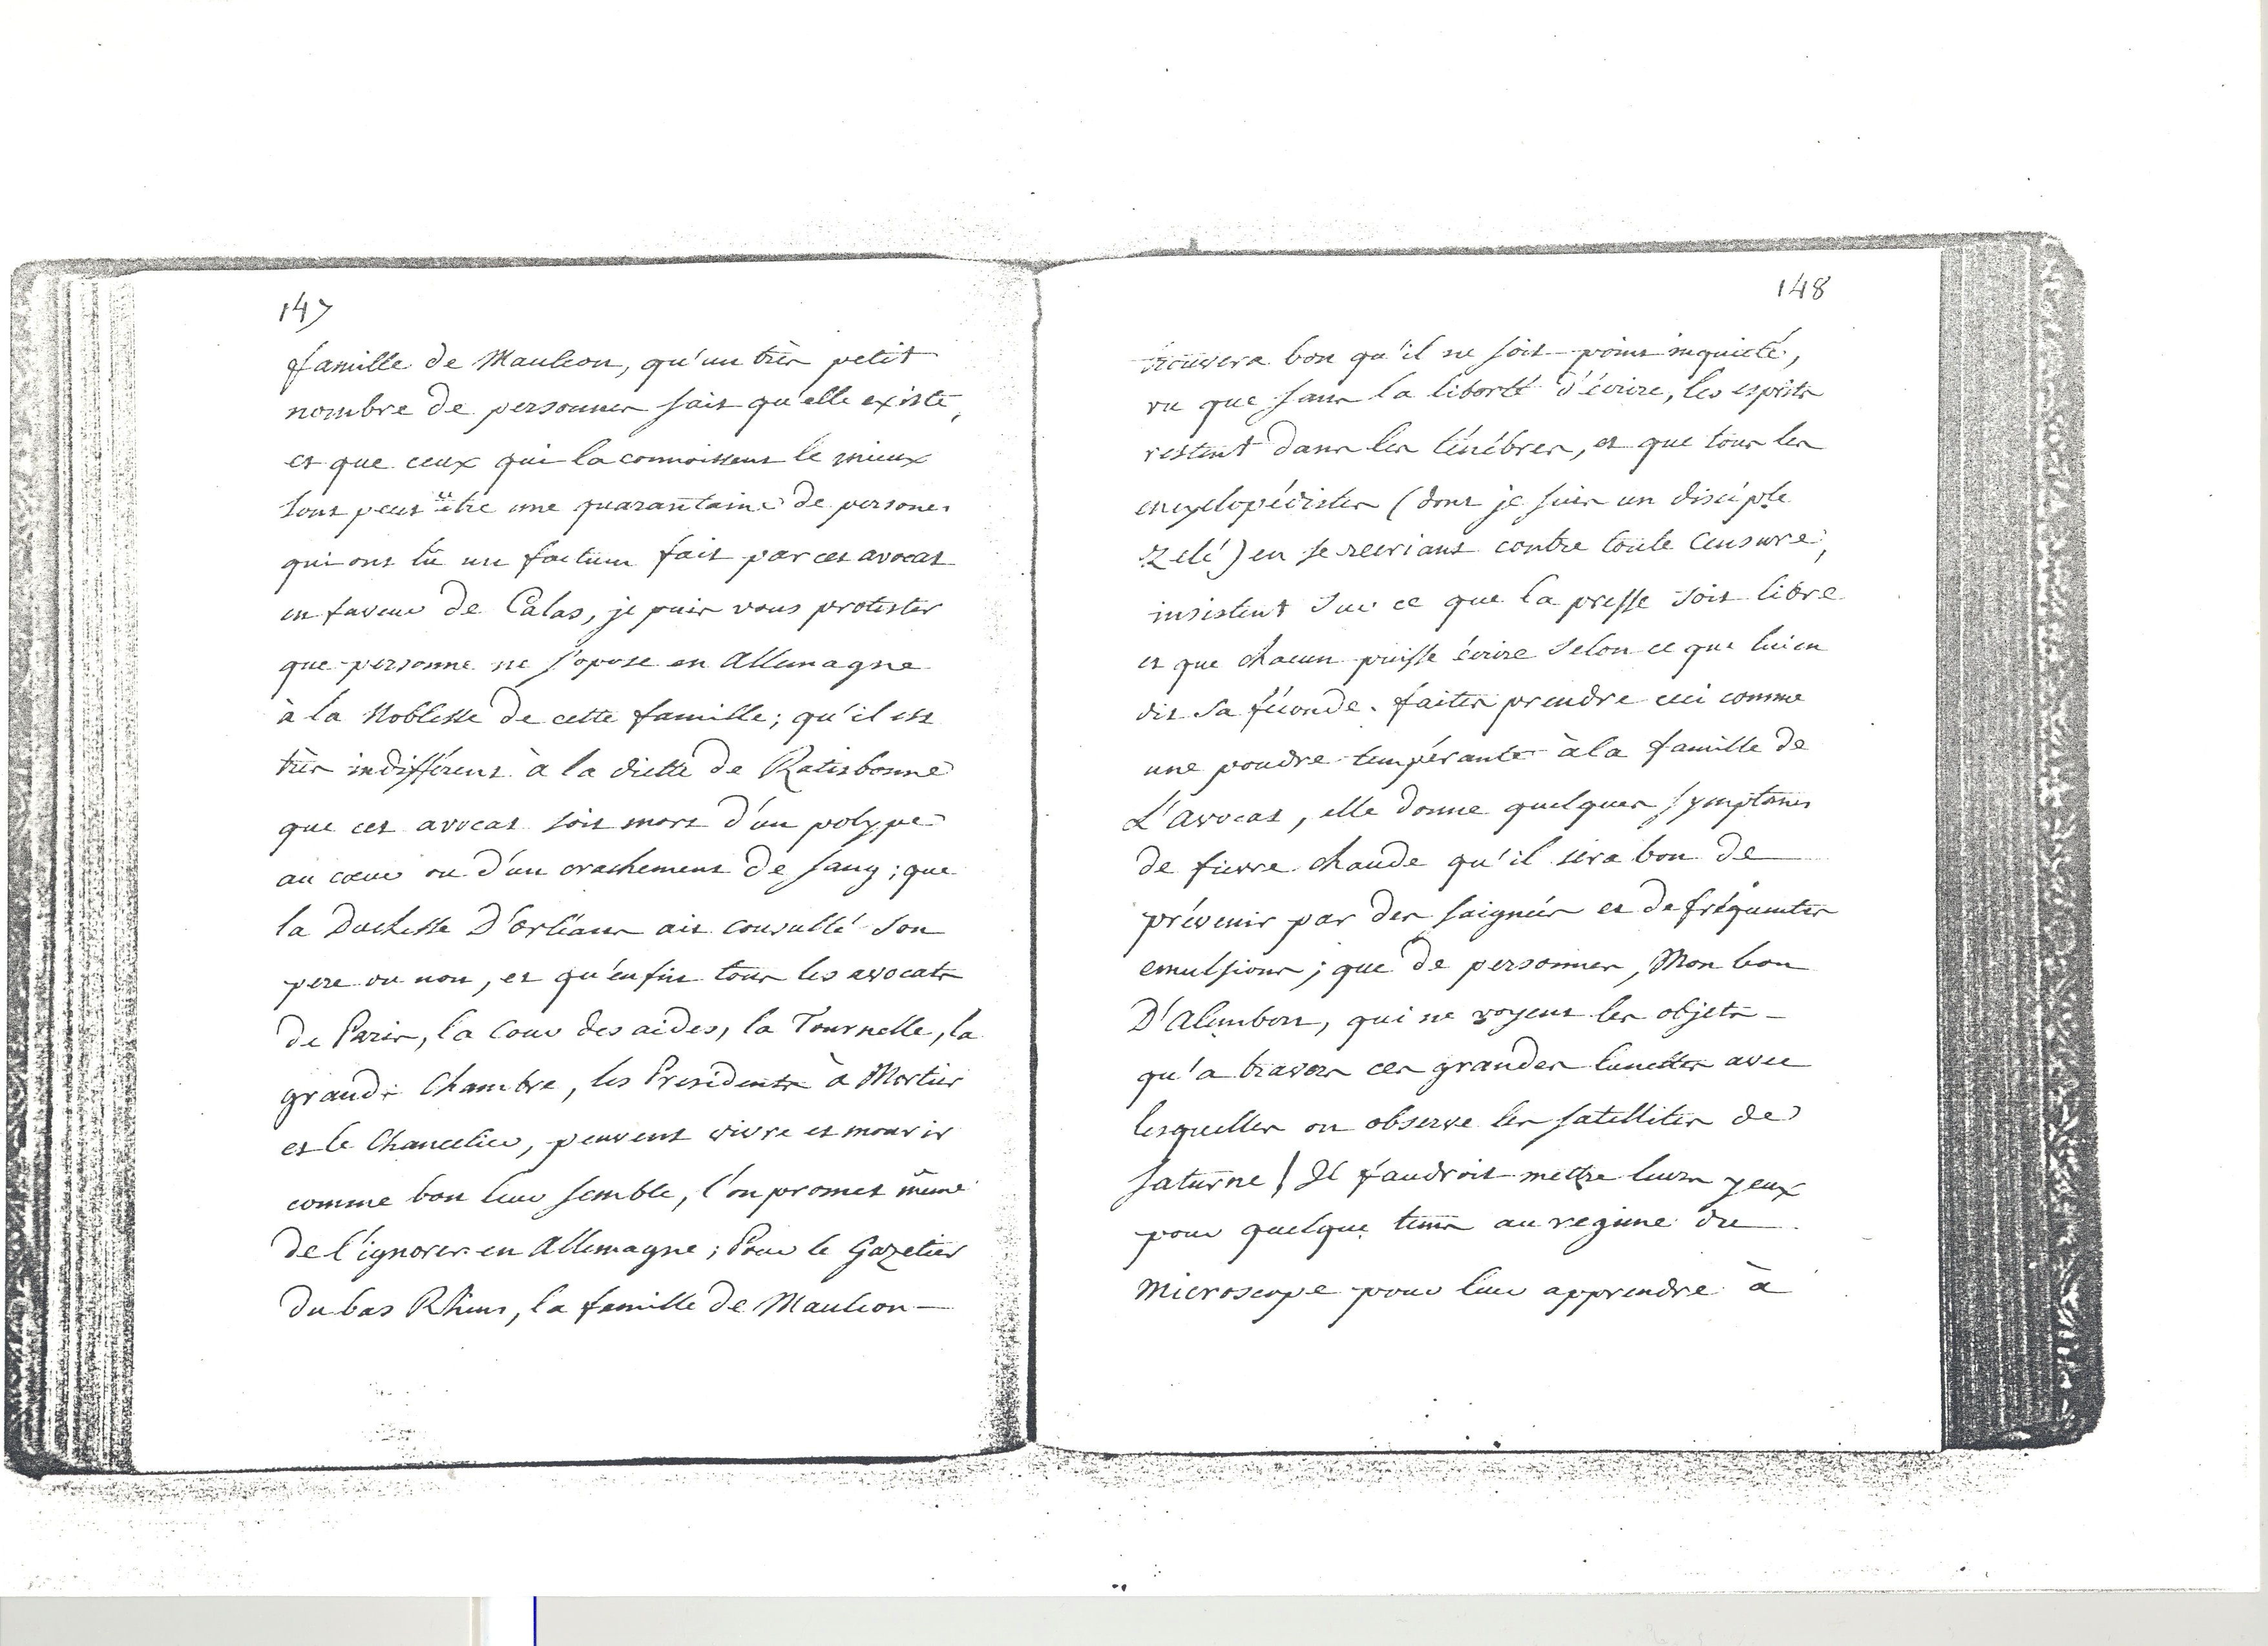 147
famille de Mauleon, qu'un très petit
nombre de personnes sait qu'elle existe,
et que ceux qui la connoissent le mieux
sont peut être une quarantaine de persones
qui ont lû un factum fait par cet avocat
en faveur de Calas, je puis vous protester
que personne ne s'opose en Allemagne
à la Noblesse de cette famille; qu'il est
très indifférent à la diette de Ratisbonne
que cet avocat soit mort d'un polype
au cœur ou d'un crachement de sang; que
la Duchesse D'orléans ait consulté son
pere ou non, et qu'enfin tous les avocats
de Paris, la Cour des aides, la Tournelle, la
grande Chambre, les Presidents à Mortier
et le Chancelier, peuvent vivre et mourir
comme bon leur semble, l'on promet même
de l'ignorer en Allemagne; Pour le Gazetier
du bas Rhins, la famille de Mauleon
148
trouvera bon qu'il ne soit point inquiété,
vu que sans la liberté d'écrire, les esprits
restent dans les ténébres, et que tous les
encyclopédistes (dont je suis un disciple
zelé) en se recriant contre toute Censure,
insistent sur ce que la presse soit libre
et que chacun puisse écrire selon ce que lui en
dit sa féconde. faites prendre ceci comme
une poudre tempérante à la famille de
L'avocat, elle donne quelques symptomes
de fievre chaude qu'il sera bon de
prévenir par des saignées et de fréquentes
emulsions; que de personnes, Mon bon
D'Alembert, qui ne voyent les objets
qu'a travers ces grandes lunettes avec
lesquelles on observe les satellites de
saturne! Il faudroit mettre leurs yeux
pour quelque tems au regime du
microscope pour leur apprendre à